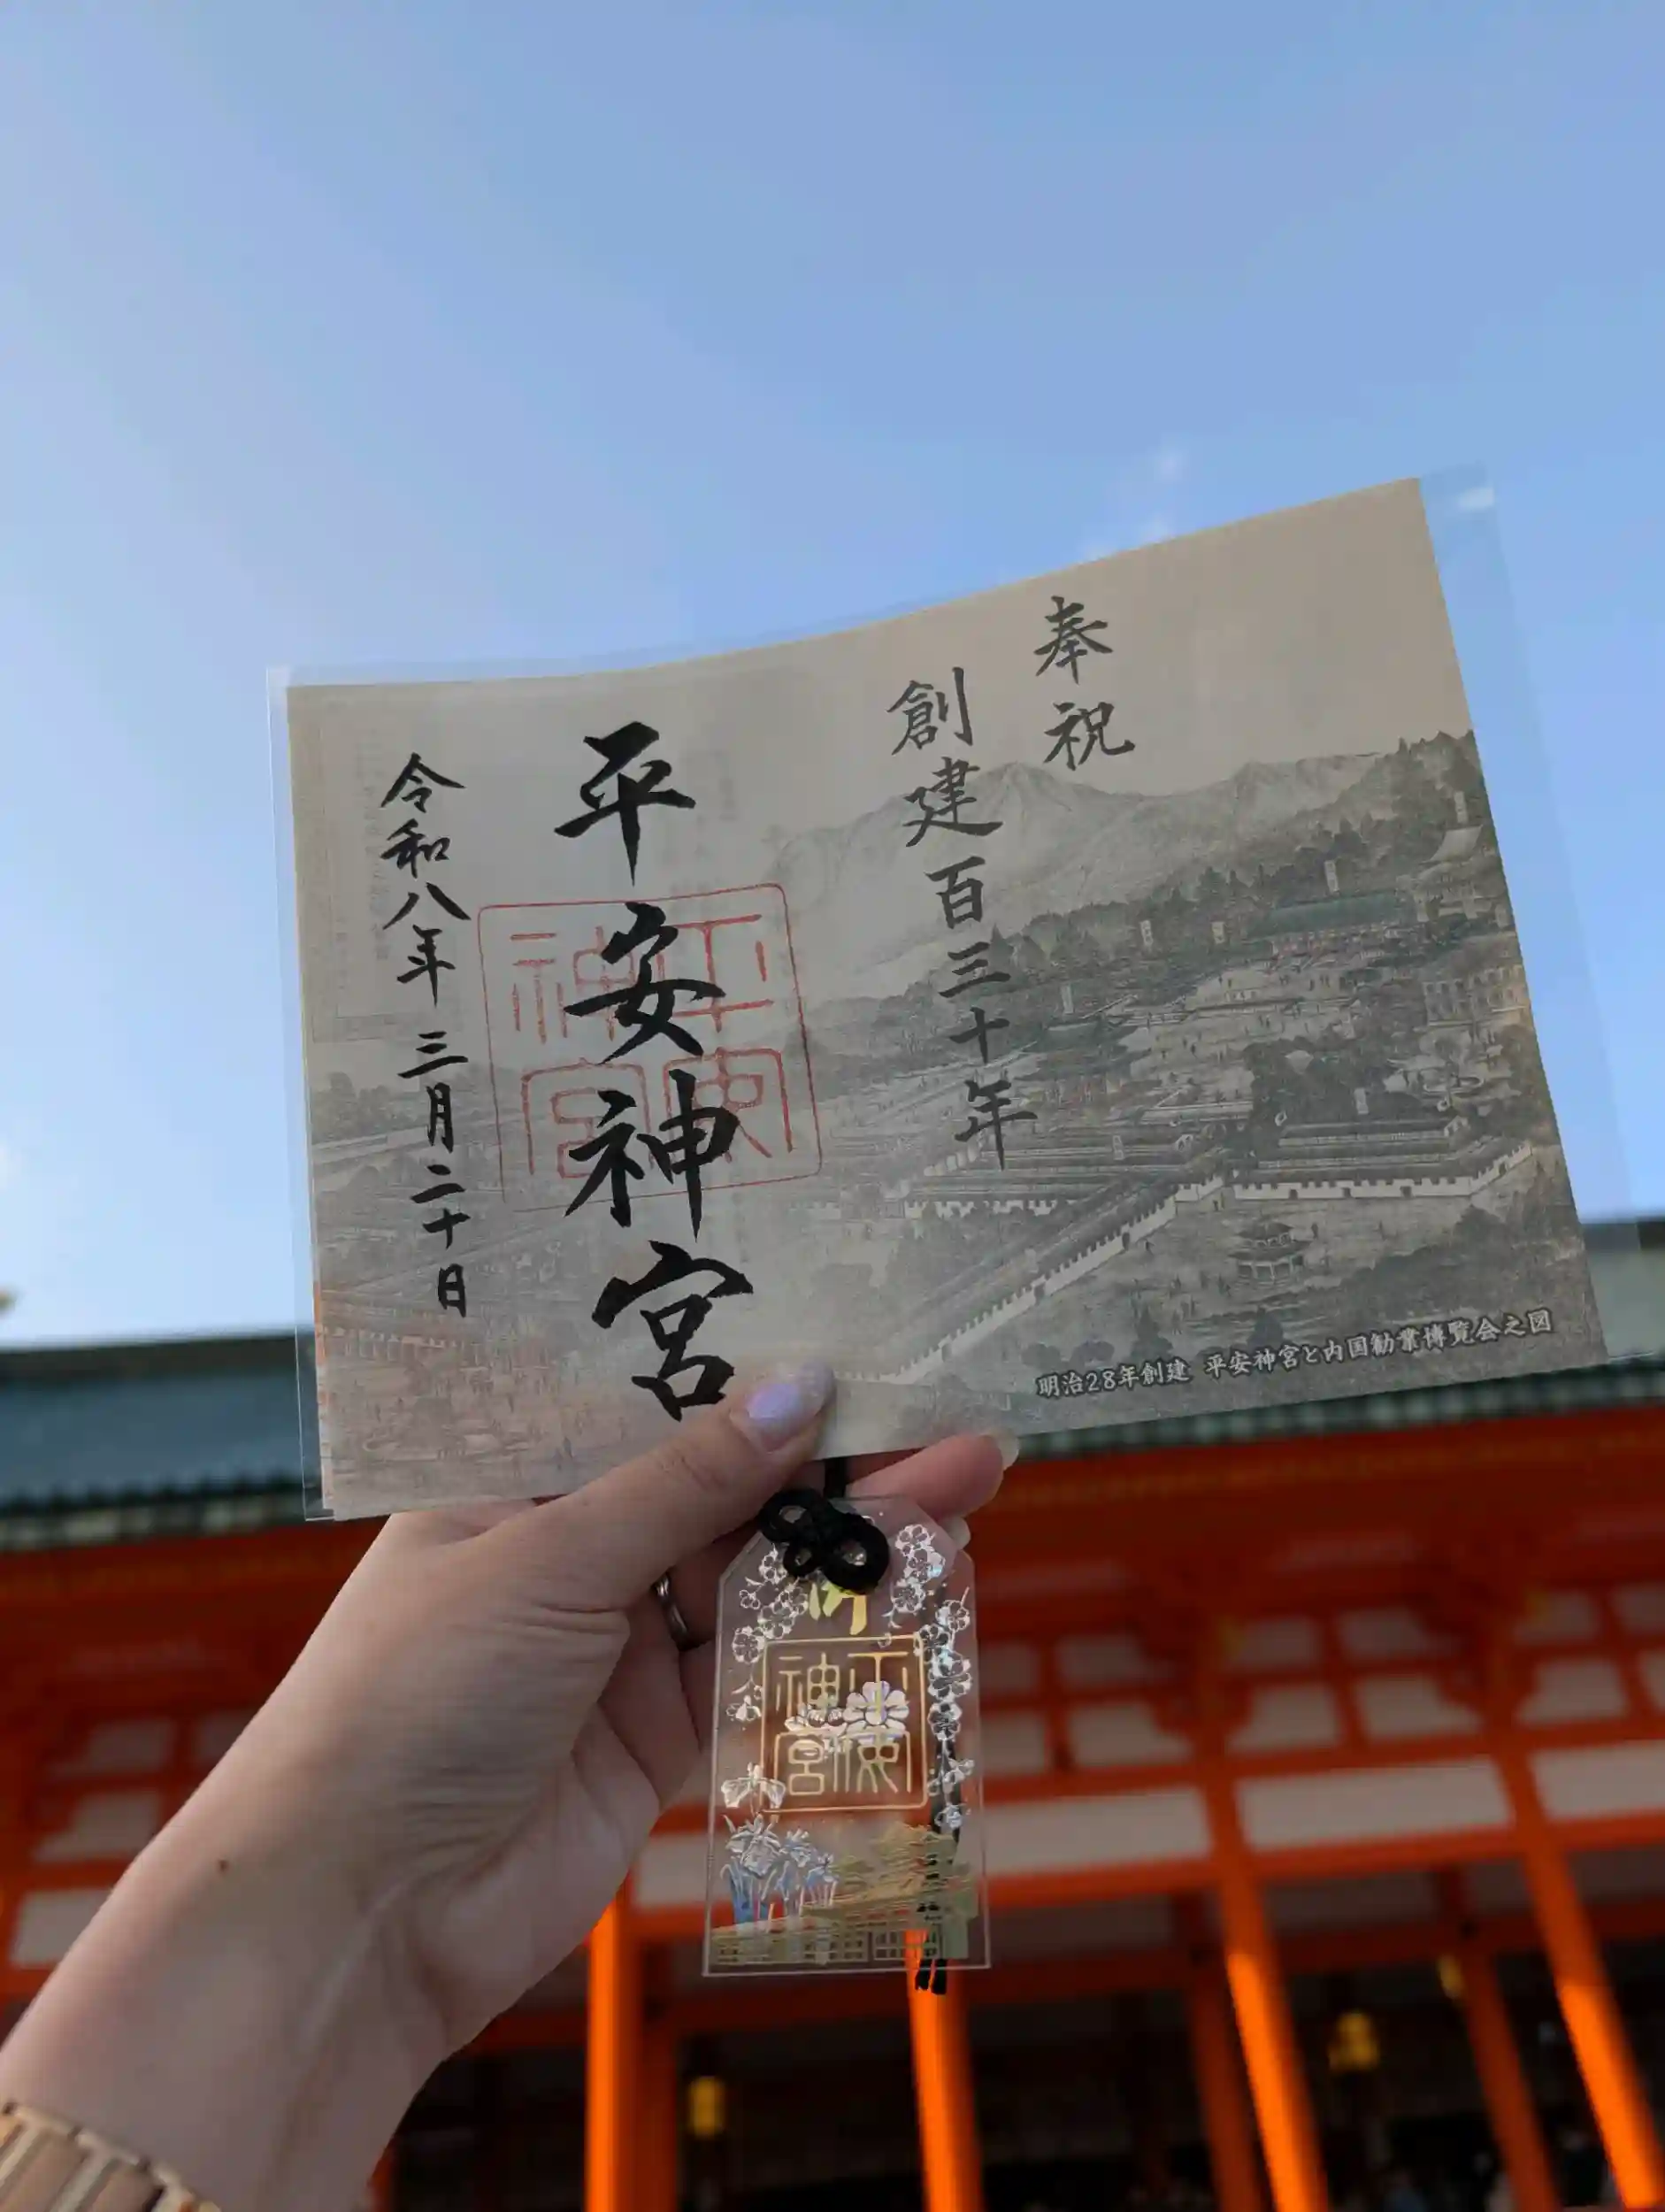 奉祝
創建百三十年
平安神宮
平安神宮
令和八年 三月二十日
明治28年創建 平安神宮と内国勧業博覧会之図
平安神宮